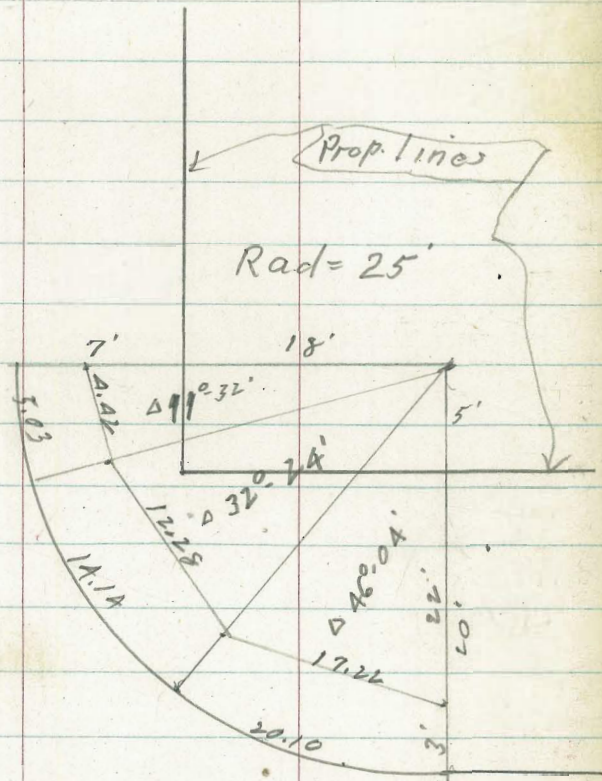 Prop. lines
Rad = 25'
7'
18'
5'
5.03
4.42
Δ 11°-32'
Δ 32°-24'
12.28
14.14
Δ 46°-04'
22'
20'
17.22
20.10
3'